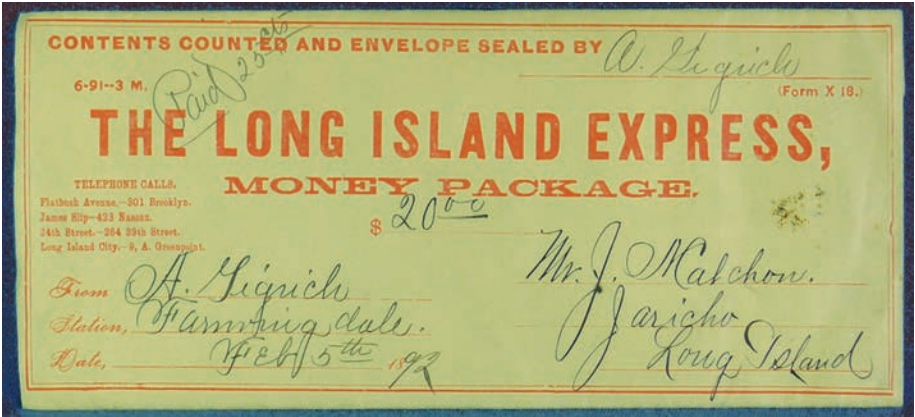 CONTENTS COUNTED AND ENVELOPE SEALED BY A. Gigrich
Paid 25 cts
6-91--3 M.
(Form X 18.)
THE LONG ISLAND EXPRESS,
MONEY PACKAGE.
TELEPHONE CALLS.
Flatbush Avenue,--301 Brooklyn.
James Slip--423 Nassau.
34th Street.--264 39th Street.
Long Island City.--9, A. Greenpoint.
$ 20 00
From A. Gigrich
Station, Farmingdale.
Date, Feb 5th 1892
Mr. J. Malchon.
Jaricho
Long Island